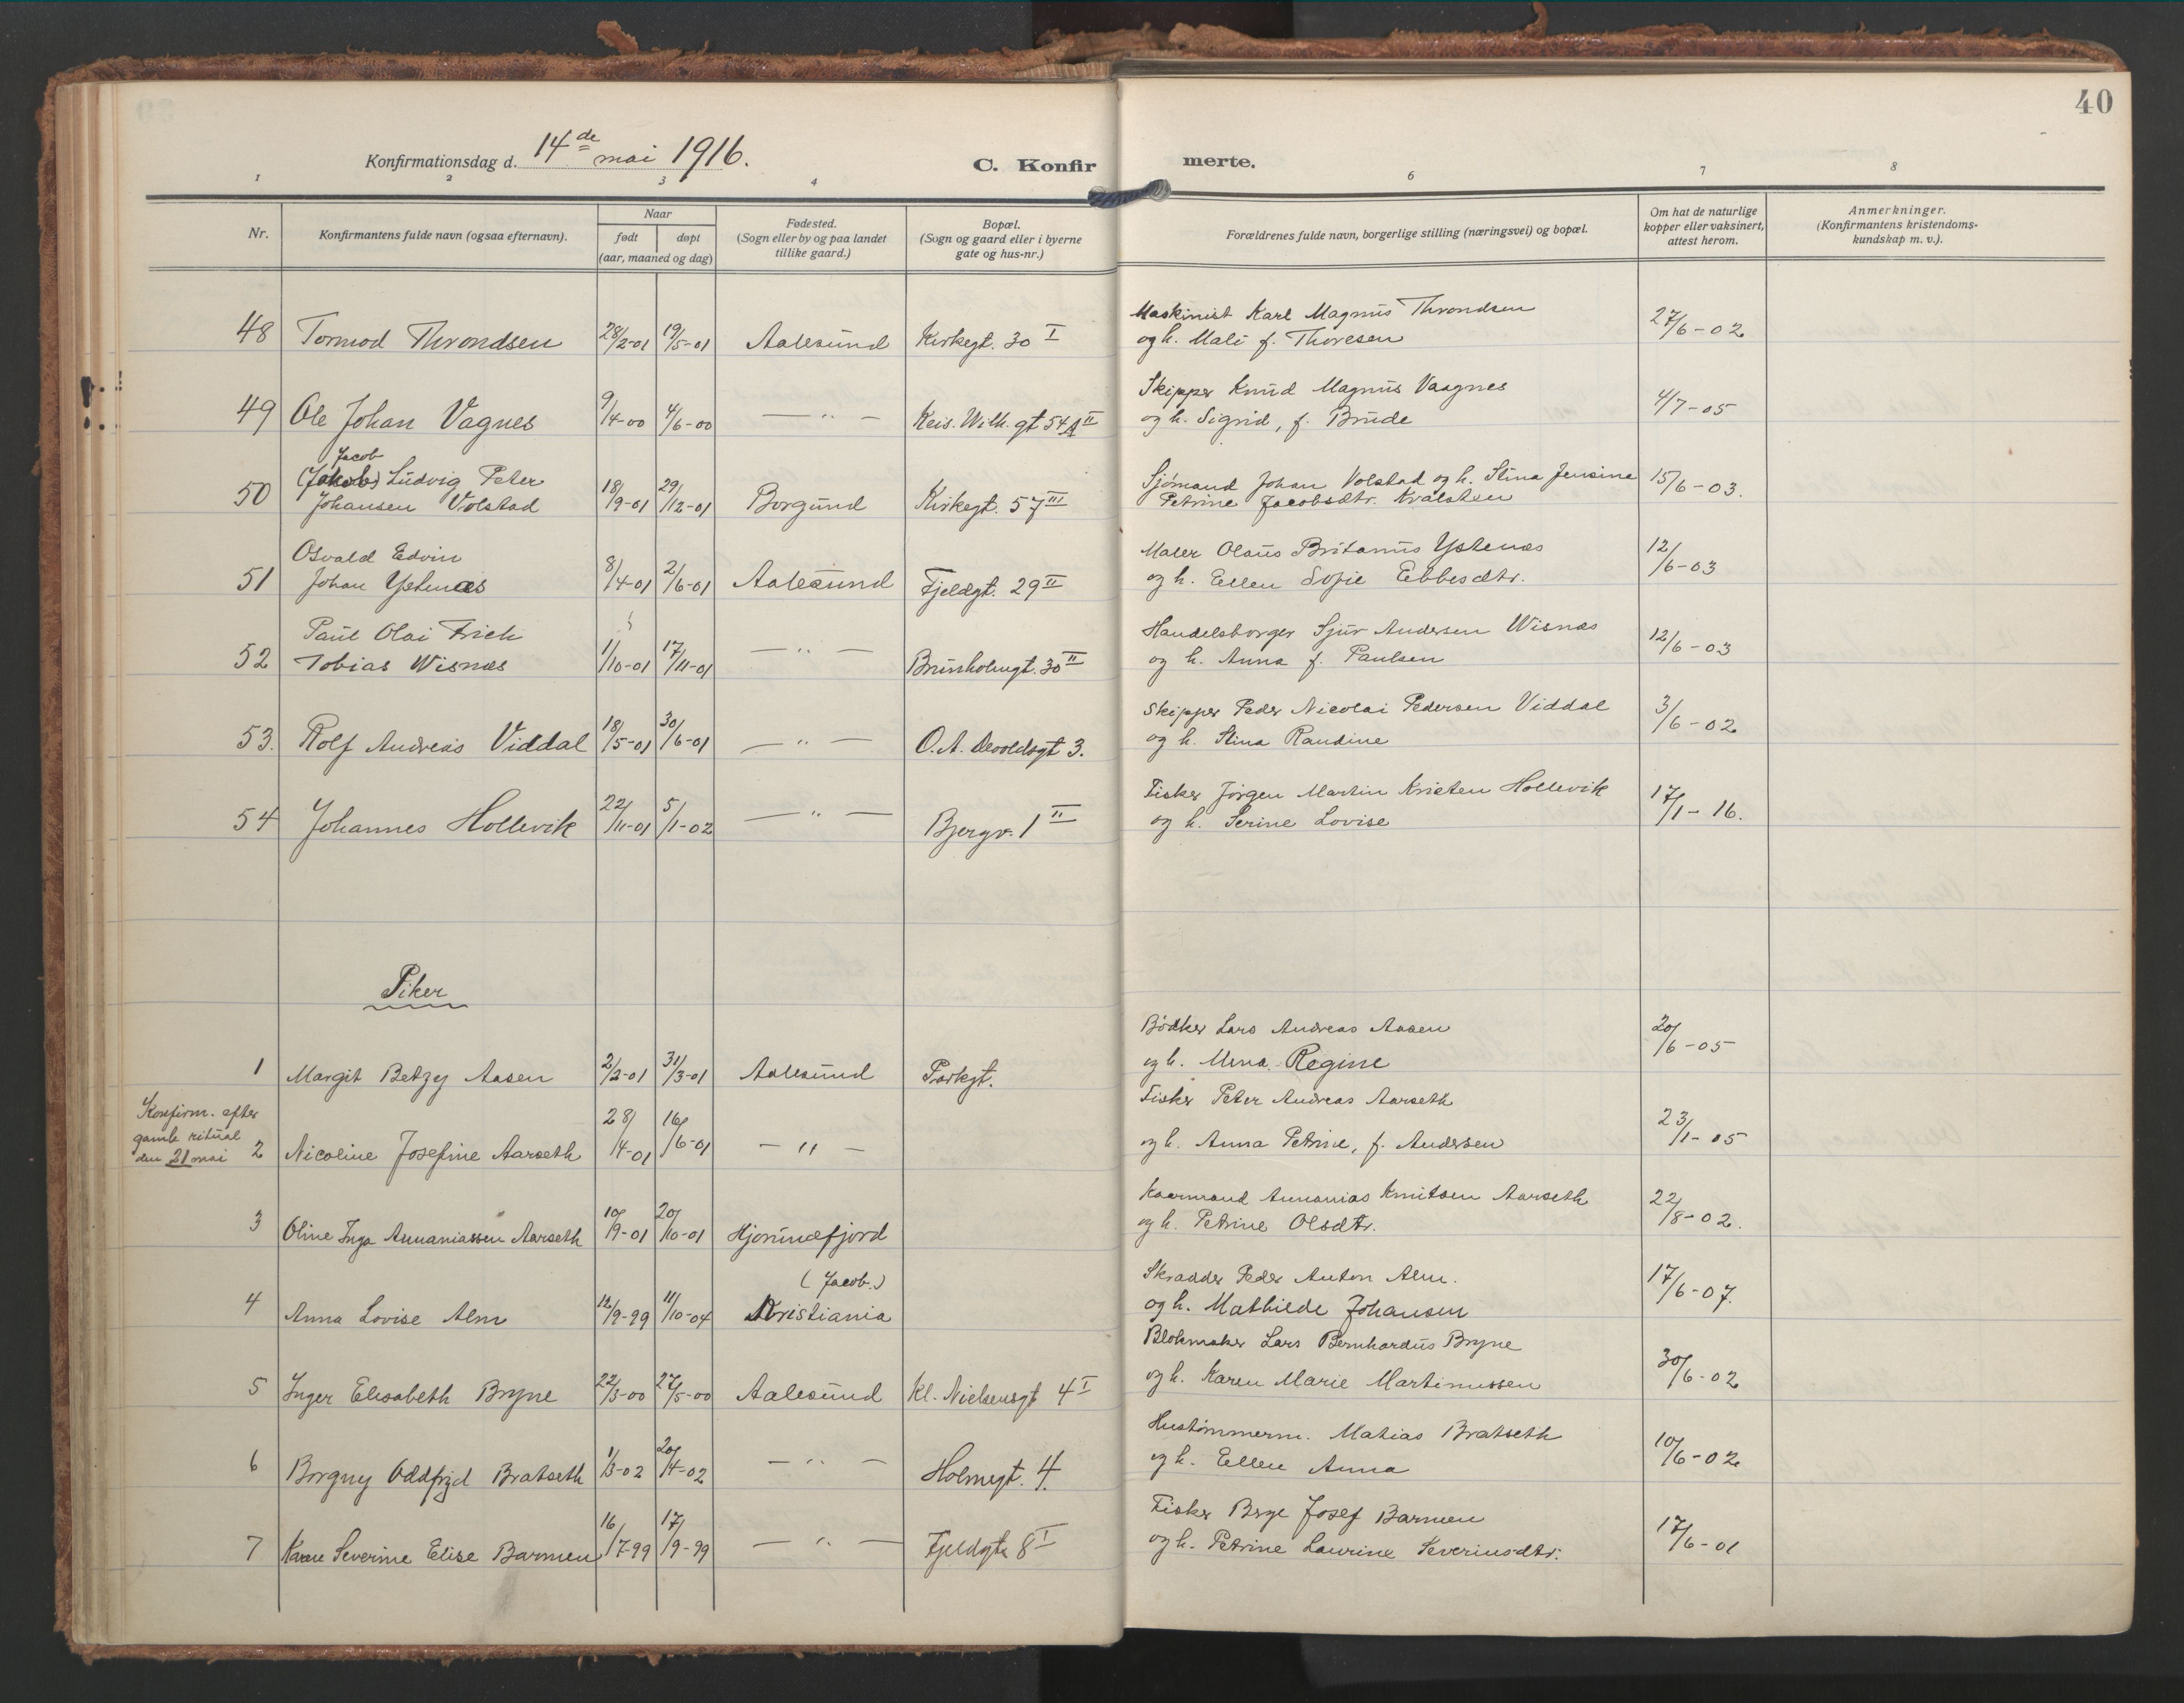 40
Konfirmationsdag d. 14de mai 1916.
C. Konfirmerte.
1 2 3 4 6 7 8
Nr.
Konfirmantens fulde navn (ogsaa efternavn).
Naar
født døpt
(aar, maaned og dag)
Fødested.
(Sogn eller by og paa landet
tillike gaard.)
Bopæl.
(Sogn og gaard eller i byerne
gate og hus-nr.)
Forældrenes fulde navn, borgerlige stilling (næringsvei) og bopæl.
Om hat de naturlige
kopper eller vaksinert,
attest herom.
Anmerkninger.
(Konfirmantens kristendoms-
kundskap m. v.).
48 Tormod Throndsen 28/2-01 19/5-01 Aalesund Kirkegt. 30 I
Maskinist Karl Magnus Throndsen
og h. Mali f. Thoresen
27/6-02
49 Ole Johan Vagnes 9/4-00 4/6-00 — " — Keis. Wilh. gt 54 A II
Skipper Knud Magnus Vaagnes
og h. Sigrid, f. Brude
4/7-05
Jacob
(Jakob) Ludvig Peter
50 Johansen Volstad 18/9-01 29/12-01 Borgund Kirkegt. 57 III
Sjømand Johan Volstad og h. Stina Jensine
Petrine Jacobsdtr. Kvalsten
15/6-03.
Osvald Edvin
51 Johan Ystenæs 8/4-01 2/6-01 Aalesund Fjeldgt. 29 II
Maler Olaus Britanus Ystenæs
og h. Ellen Sofie Ebbesdtr.
12/6-03
Paul Olai Frich
52 Tobias Wisnæs 1/10-01 17/11-01 — " — Brunholmgt. 30 II
Handelsborger Sjur Andersen Wisnæs
og h. Anna f. Paulsen
12/6-03
53. Rolf Andreas Viddal 18/5-01 30/6-01 — " — O. A. Devoldsgt 3.
Skipper Peder Nicolai Pedersen Viddal
og h. Stina Raudine
3/6-02
54 Johannes Hollevik 22/11-01 5/1-02 — " — Bjergv. 1 II
Fisker Jørgen Martin Kristen Hollevik
og h. Serine Lovise
17/1-16.
Piker
1 Margit Betzy Aasen 2/2-01 31/3-01 Aalesund Parkgt.
Bødker Lars Andreas Aasen
og h. Mena Regine
20/6-05
Konfirm. efter
gamle ritual
den 21 mai
2 Nicoline Josefine Aarseth 28/4-01 16/6-01 — " —
Fisker Peter Andreas Aarseth
og h. Anna Petrine, f. Andersen
23/1-05
3 Oline Inga Annaniassen Aarseth 10/9-01 20/10-01 Hjørundfjord
Kaarmand Annanias Knutsen Aarseth
og h. Petrine Olsdtr.
22/8-02.
4 Anna Lovise Alm 12/9-99 11/10-04 (Jacob.)
Kristiania
Skrædder Peder Anton Alm.
og h. Mathilde Johansen
17/6-07.
5 Inger Elisabeth Bryne 22/3-00 27/5-00 Aalesund Kl. Nielsensgt 4 I
Blokmaker Lars Bernhardus Bryne
og h. Karen Marie Martinussen
30/6-02
6 Borgny Oddfrid Bratseth 1/3-02 20/4-02 — " — Holmegt. 4.
Hustømmerm. Matias Bratseth
og h. Ellen Anna
10/6-02
7 Karen Severine Elise Barmen 16/7-99 17/9-99 — " — Fjeldgt. 8 I
Fisker Berge Josef Barmen
og h. Petrine Laurine Severinsdtr.
17/6-01